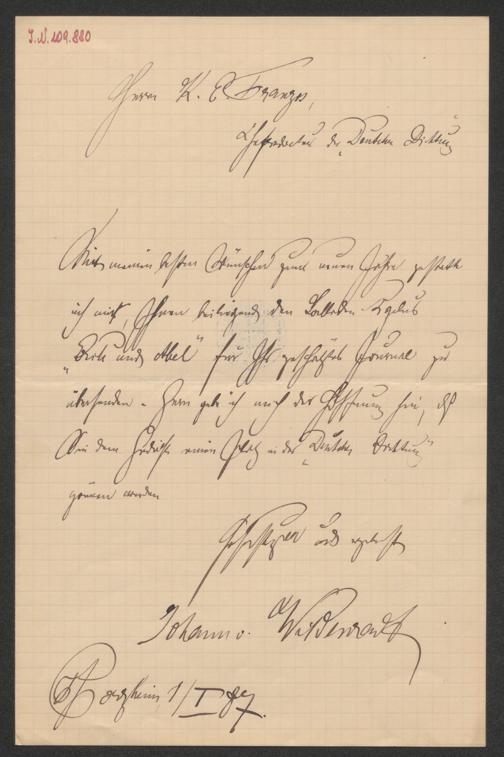 I.N. 109.880
Herrn K. E. Franzos,
Chefredacteur der „Deutschen Dichtung“
Mit meinen besten Wünschen zum neuen Jahre gestatte
ich mir, Ihnen beiliegend den Balladen-Cyclus
„Erik und Abel“ für Ihr geschätztes Journal zu
übersenden. Gern gebe ich mich der Hoffnung hin, daß
Sie dem Gedichte einen Platz in der „Deutschen Dichtung“
gönnen werden
Hochachtungsvoll
Johann v. Wildenradt
1/I 87.